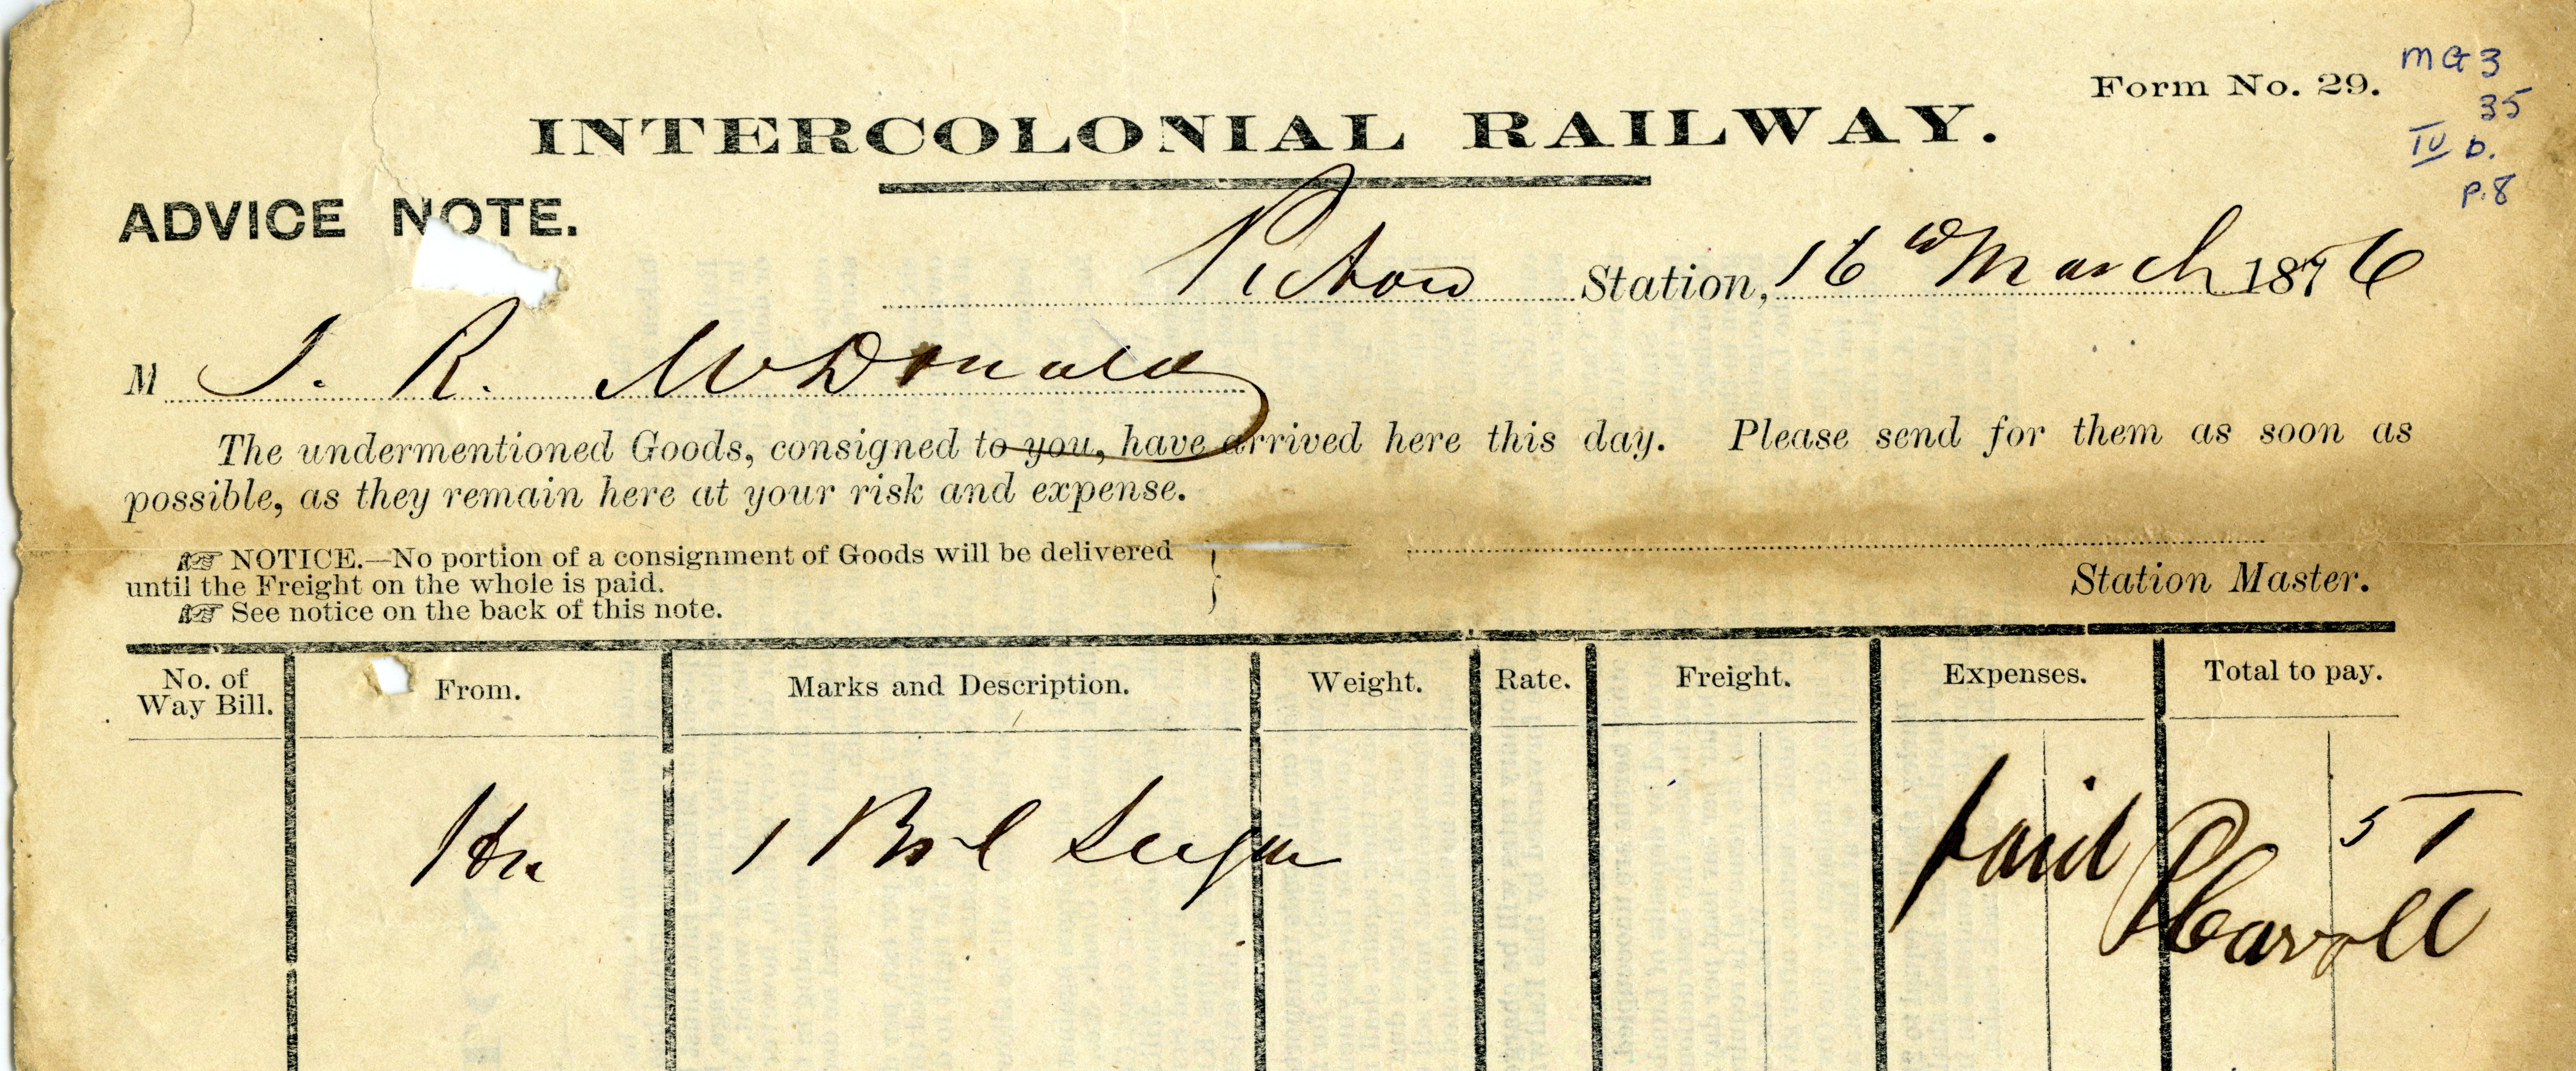 Form No. 29.
MG3
35
IV b.
p.8
INTERCOLONIAL RAILWAY.
ADVICE NOTE.
Pictou Station, 16 March 1876
M J. R. McDonald
The undermentioned Goods, consigned to you, have arrived here this day. Please send for them as soon as
possible, as they remain here at your risk and expense.
☞ NOTICE.—No portion of a consignment of Goods will be delivered
until the Freight on the whole is paid.
☞ See notice on the back of this note.
Station Master.
No. of Way Bill. From. Marks and Description. Weight. Rate. Freight. Expenses. Total to pay.
1 Brl Sugar paid 51
Carroll